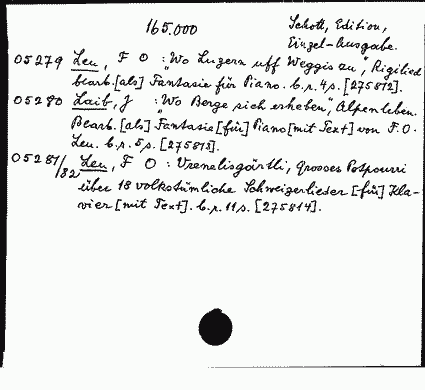 165.000
Schott, Edition,
Einzel-Ausgabe.
05279 Leu, F O : "Wo Luzern uff Weggis zu", Rigilied
bearb. [als] Fantasie für Piano. b.r. 4 s. [275812].
05280 Laib, J : "Wo Berge sich erheben", Alpenleben.
Bearb. [als] Fantasie [für] Piano [mit Text] von F. O.
Leu. b.r. 5 s. [275813].
05281/82 Leu, F O : Vrenelisgärtli, grosses Potpourri
über 18 volkstümliche Schweizerlieder [für] Kla-
vier [mit Text]. b.r. 11 s. [275814].